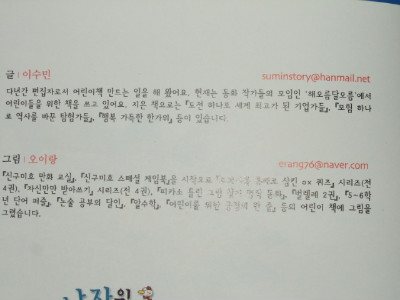 글 | 이수민
suminstory@hanmail.net
다년간 편집자로서 어린이책 만드는 일을 해 왔어요. 현재는 동화 작가들의 모임인 '해오름달모름'에서
어린이들을 위한 책을 쓰고 있어요. 지은 책으로는 『도전 하나로 세계 최고가 된 기업가들』, 『모험 하나
로 역사를 바꾼 탐험가들』, 『행복 가득한 한가위』 등이 있습니다.
그림 | 오이랑
erang76@naver.com
『신구미호 만화 교실』, 『신구미호 스페셜 게임북』을 시작으로 삼킨 ox 퀴즈』 시리즈(전
4권), 『자신만만 받아쓰기』 시리즈(전 4권), 『피카소 동화』, 『벌렐레 2권』, 『5~6학
년 단어 퍼즐』, 『논술 공부의 달인』, 『말수학』, 『어린이를 위한 긍정의 한 줄』 등의 어린이 책에 그림을
그렸습니다.